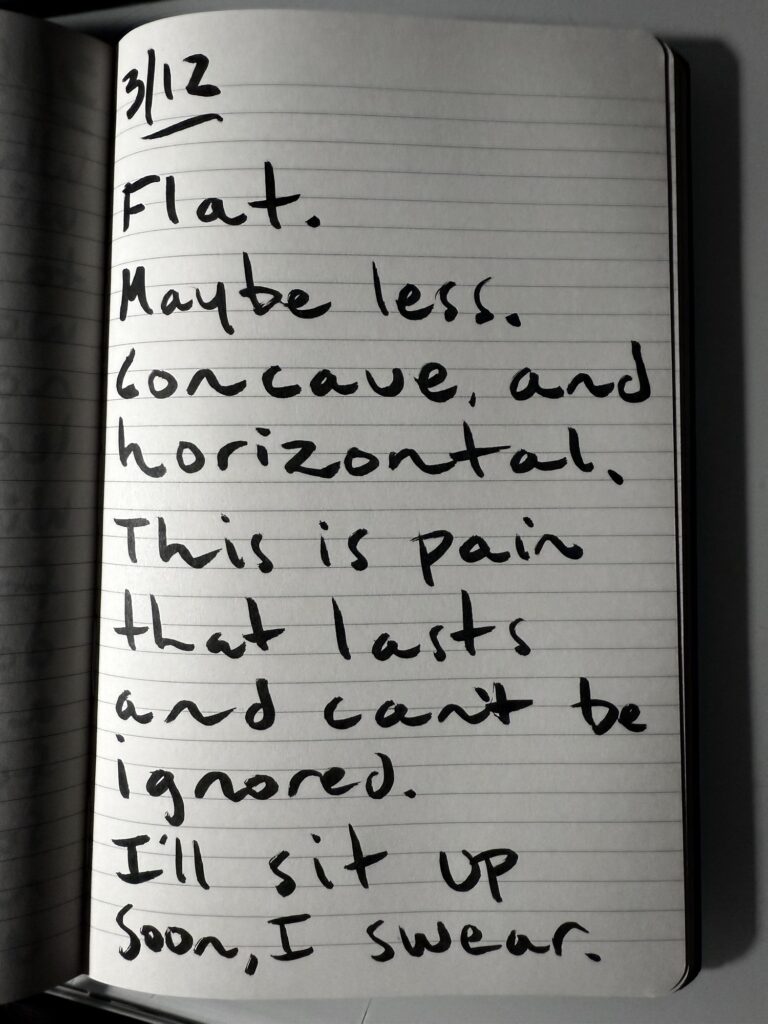 3/12
Flat.
Maybe less.
Concave, and
horizontal.
This is pain
that lasts
and can't be
ignored.
I'll sit up
soon, I swear.